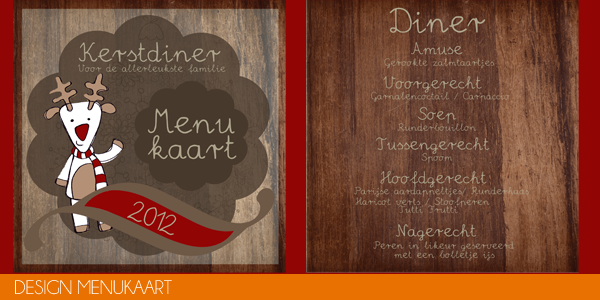 Kerstdiner
Voor de allerleukste familie
Menu
kaart
2012
Diner
Amuse
Gerookte zalmtaartjes
Voorgerecht
Garnalencoctail / Carpaccio
Soep
Runderbouillon
Tussengerecht
Spoom
Hoofdgerecht
Parijse aardappeltjes/ Runderhaas
Haricot verts / Stoofperen
Tutti Frutti
Nagerecht
Peren in likeur geserveerd
met een bolletje ijs
DESIGN MENUKAART